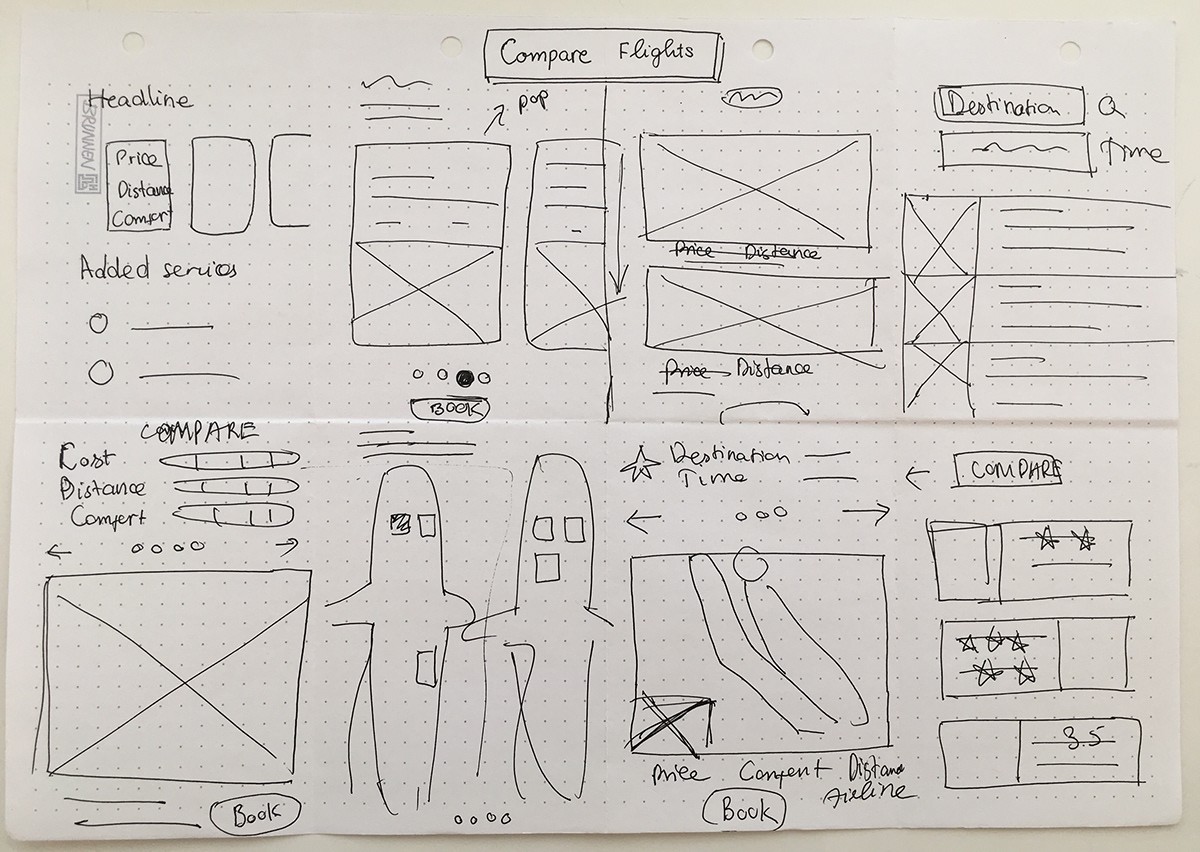 Compare Flights
Headline
BRUNNEN
Price
Distance
Comfort
Added servies
pop
BOOK
Price Distance
Price Distance
Destination
Time
COMPARE
Cost
Distance
Comfert
Book
Destination
Time
Price Comfert Distane
Airline
Book
COMPARE
3.5